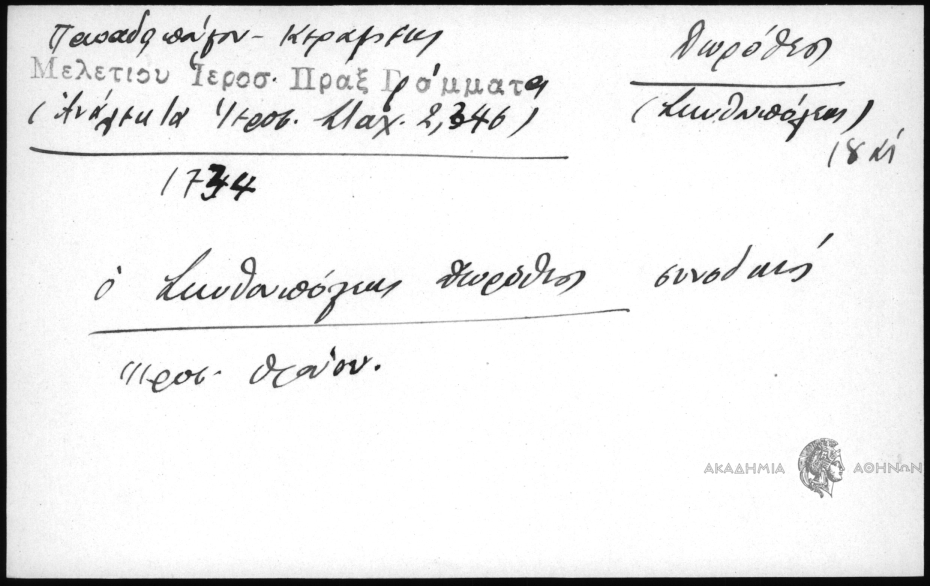 Παπαδοπούλου - Κεραμέως
Μελετίου Ἱεροσ. Πραξ Γράμματα
(Ἀνάλεκτα Ἱεροσ. Σταχ. 2, 346)
1734
Δωρόθεος
(Σκυθουπόλεως)
18 αἰ
ὁ Σκυθουπόλεως Δωρόθεος συνοδικός
Ἱεροσ. θρόνου.
ΑΚΑΔΗΜΙΑ ΑΘΗΝΩΝ